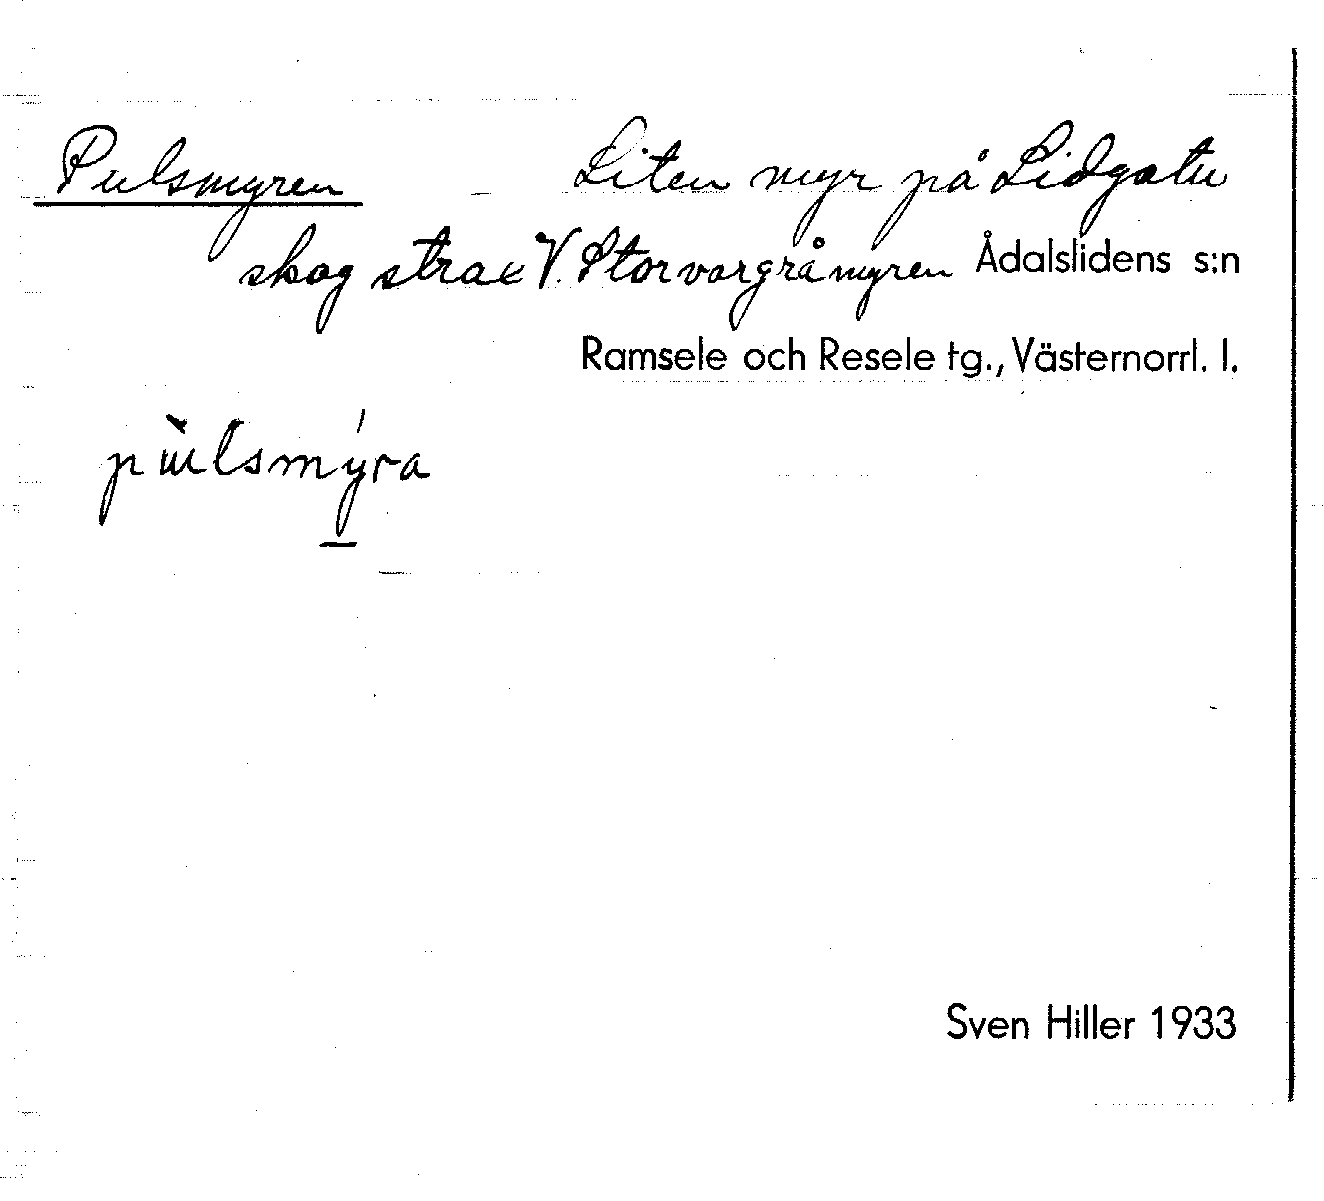 Pulsmyren – Liten myr på Lidgatu
skog strax V. Storvargråmyren Ådalslidens s:n
Ramsele och Resele tg., Västernorrl. l.
pùlsmýra
Sven Hiller 1933